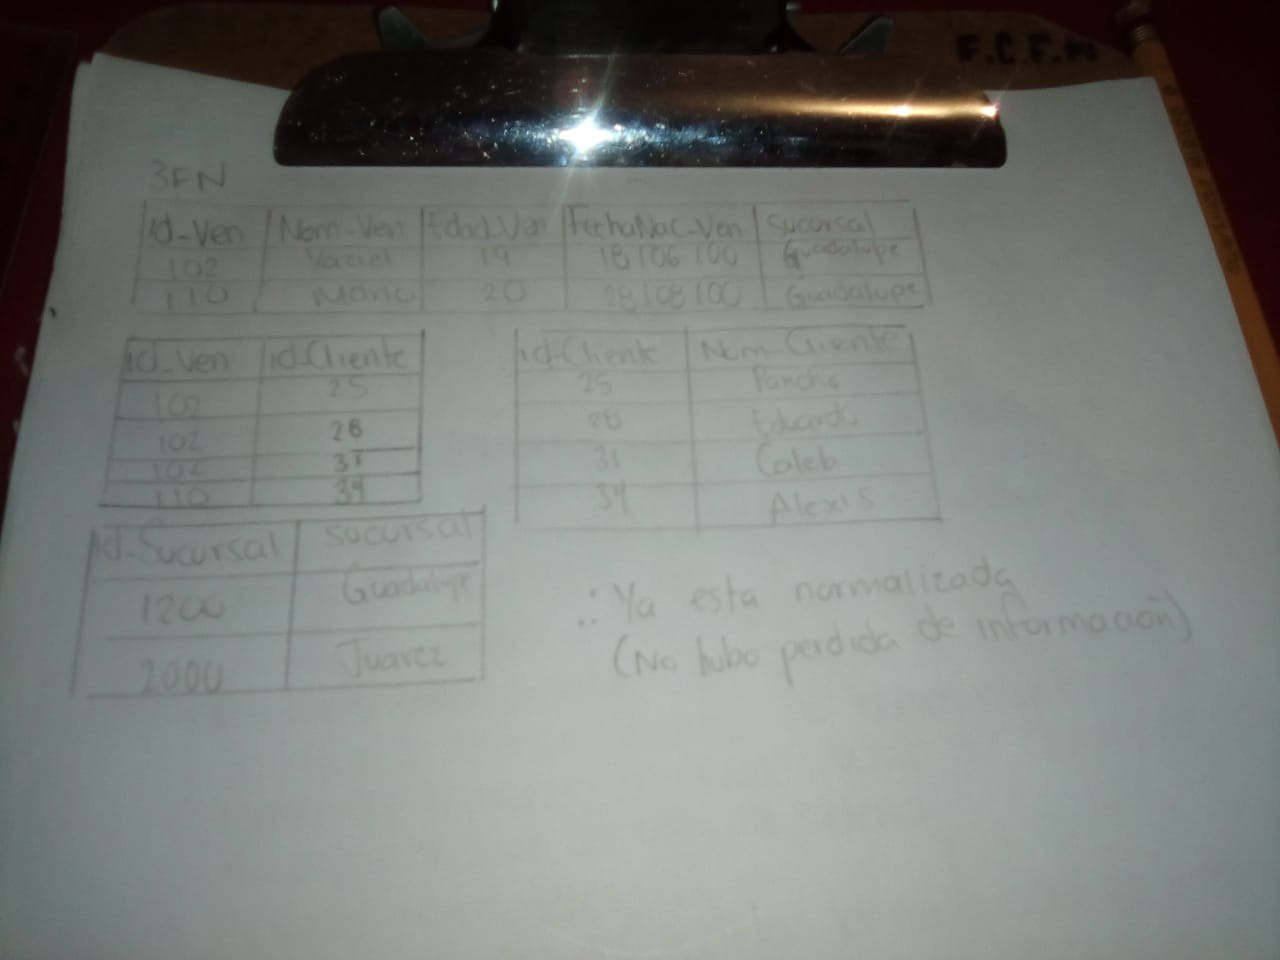 F.C.F.M
3FN
Id-Ven Nom-Ven Edad-Ven FechaNac-Ven Sucursal
102 Yaziel 19 18/06/00 Guadalupe
110 Mario 20 28/08/00 Guadalupe
id-Ven id-Cliente
102 25
102 28
102 31
110 34
id-Cliente Nom-Cliente
25 Pancho
28 Eduardo
31 Caleb
34 Alexis
Id-Sucursal Sucursal
1200 Guadalupe
2000 Juarez
∴ Ya esta normalizada
(No hubo perdida de información)